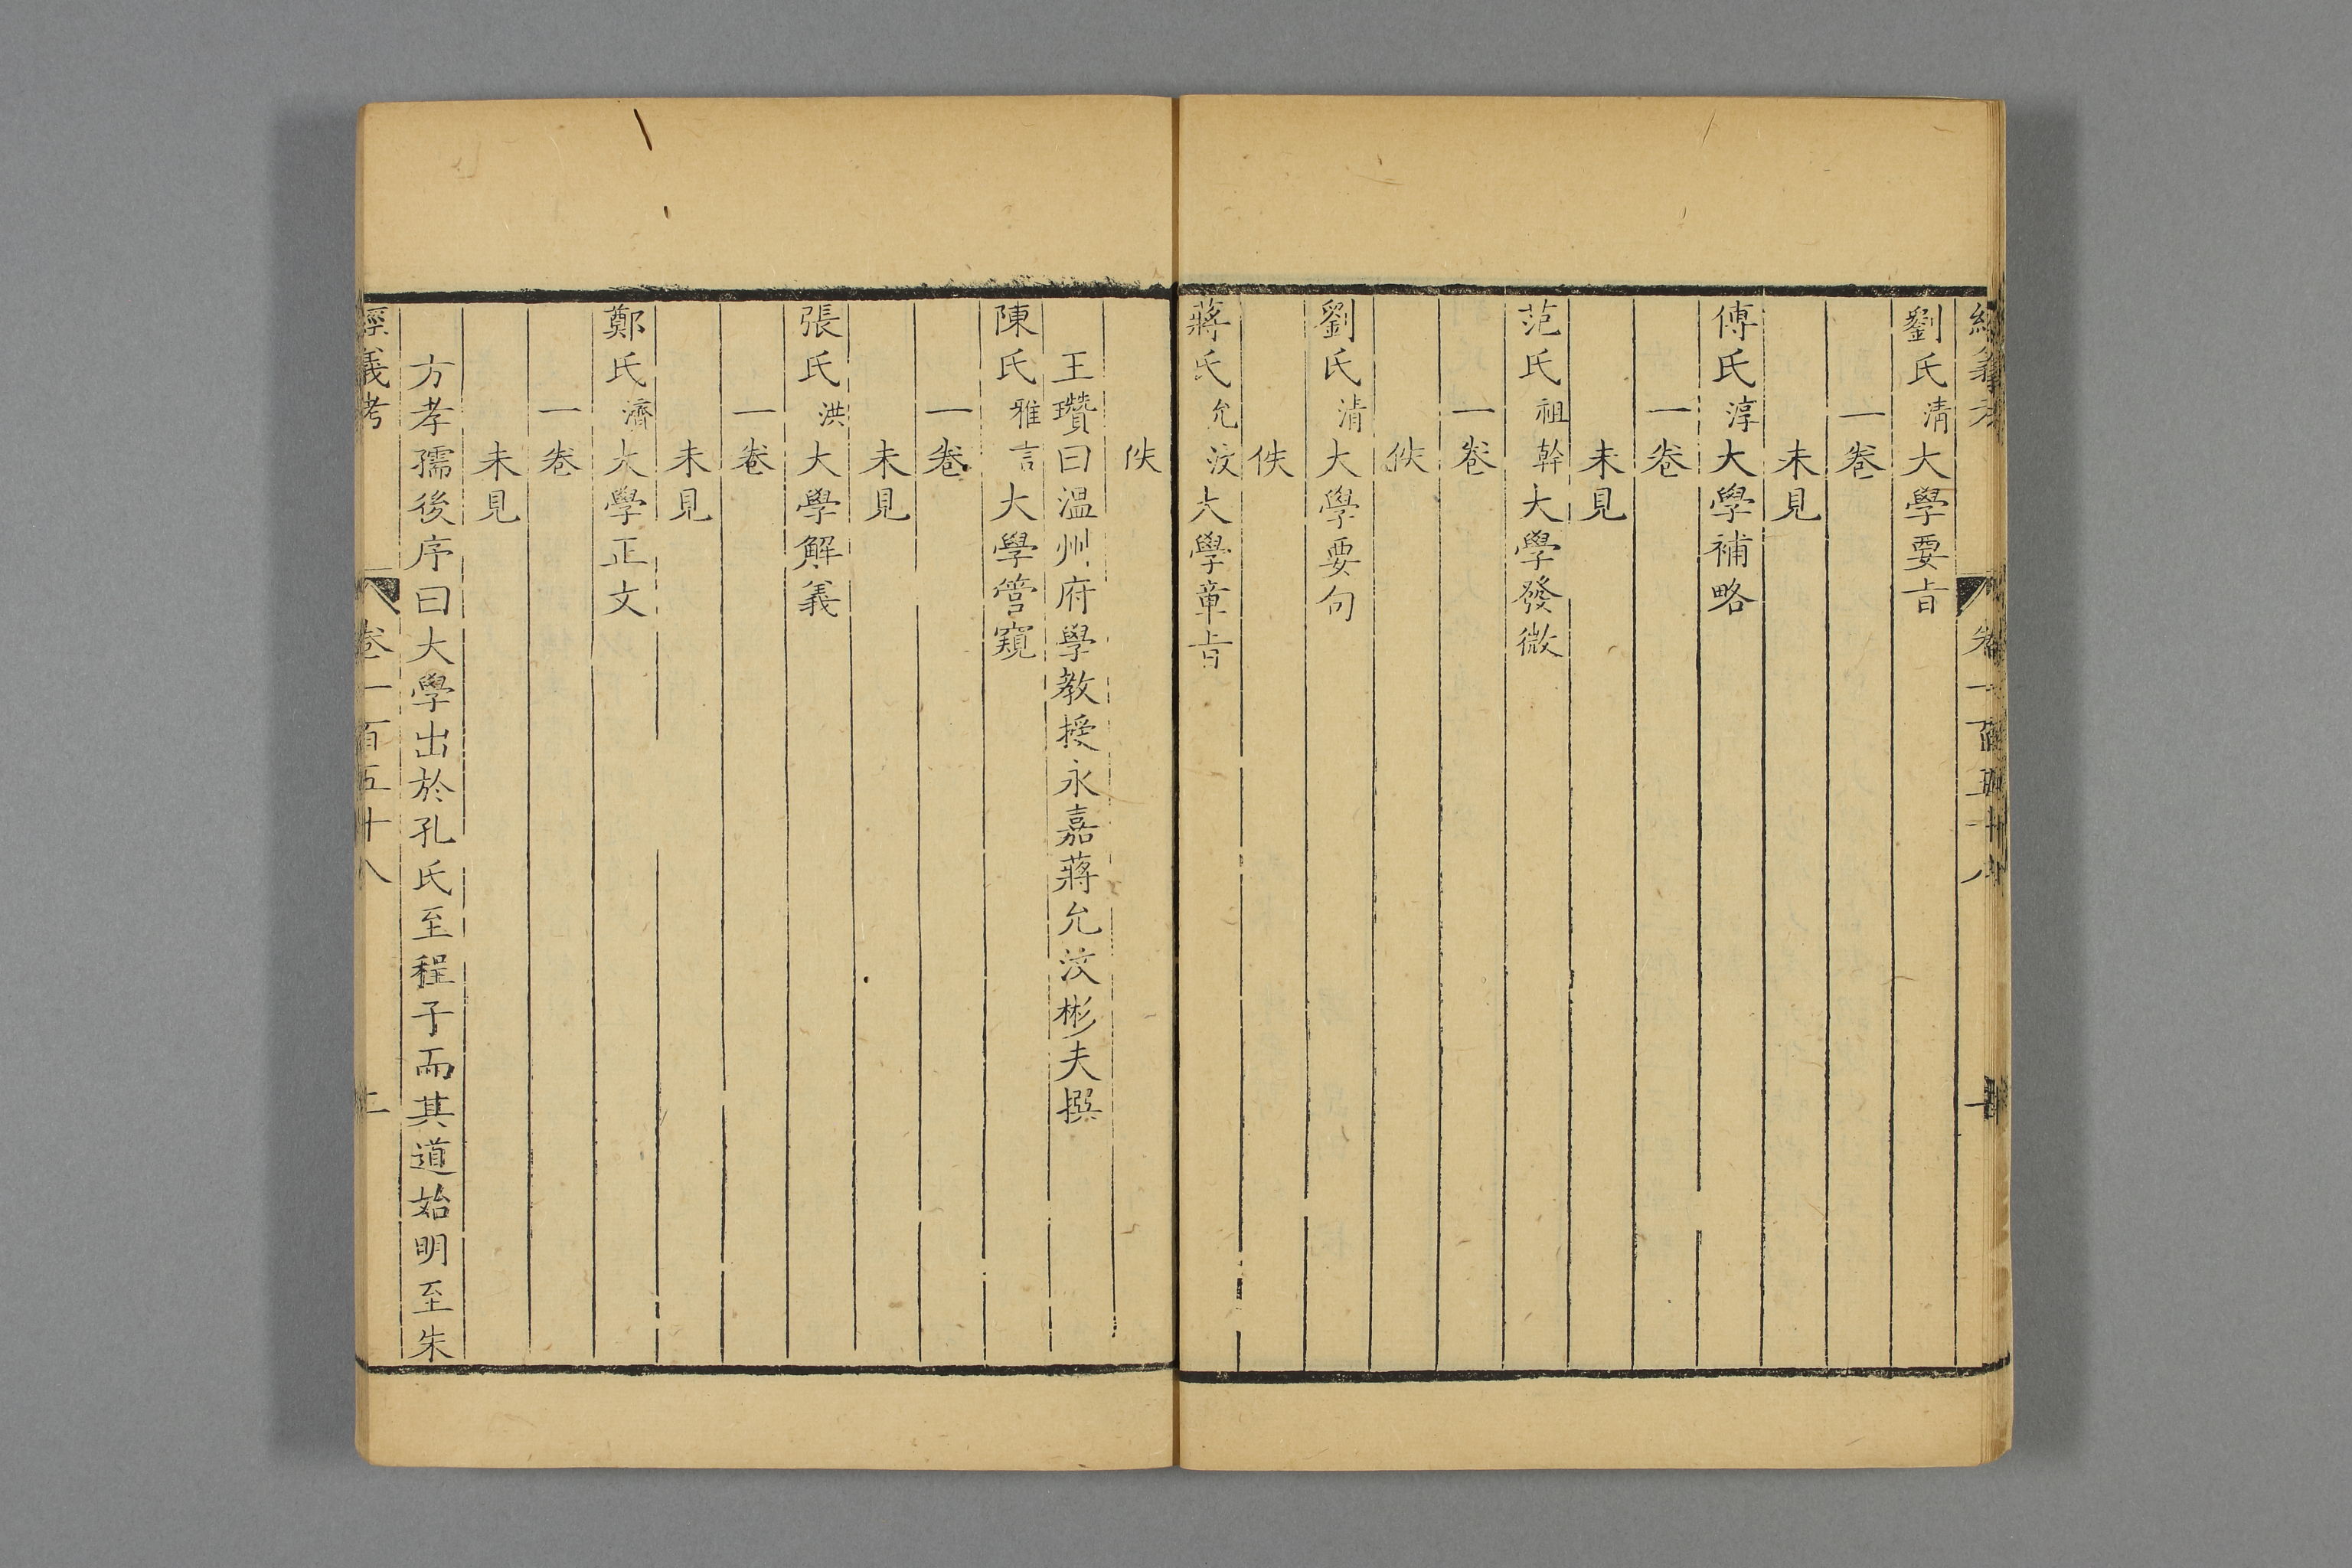 經義考 卷一百五十八
劉氏清大學要旨
一卷
未見
傅氏淳大學補略
一卷
未見
范氏祖幹大學發微
一卷
佚
劉氏清大學要句
佚
蔣氏允汶大學章旨
佚
王瓚曰溫州府學教授永嘉蔣允汶彬夫撰
陳氏雅言大學管窺
一卷
未見
張氏洪大學解義
一卷
未見
鄭氏濟大學正文
一卷
未見
方孝孺後序曰大學出於孔氏至程子而其道始明至朱
經義考 卷一百五十八